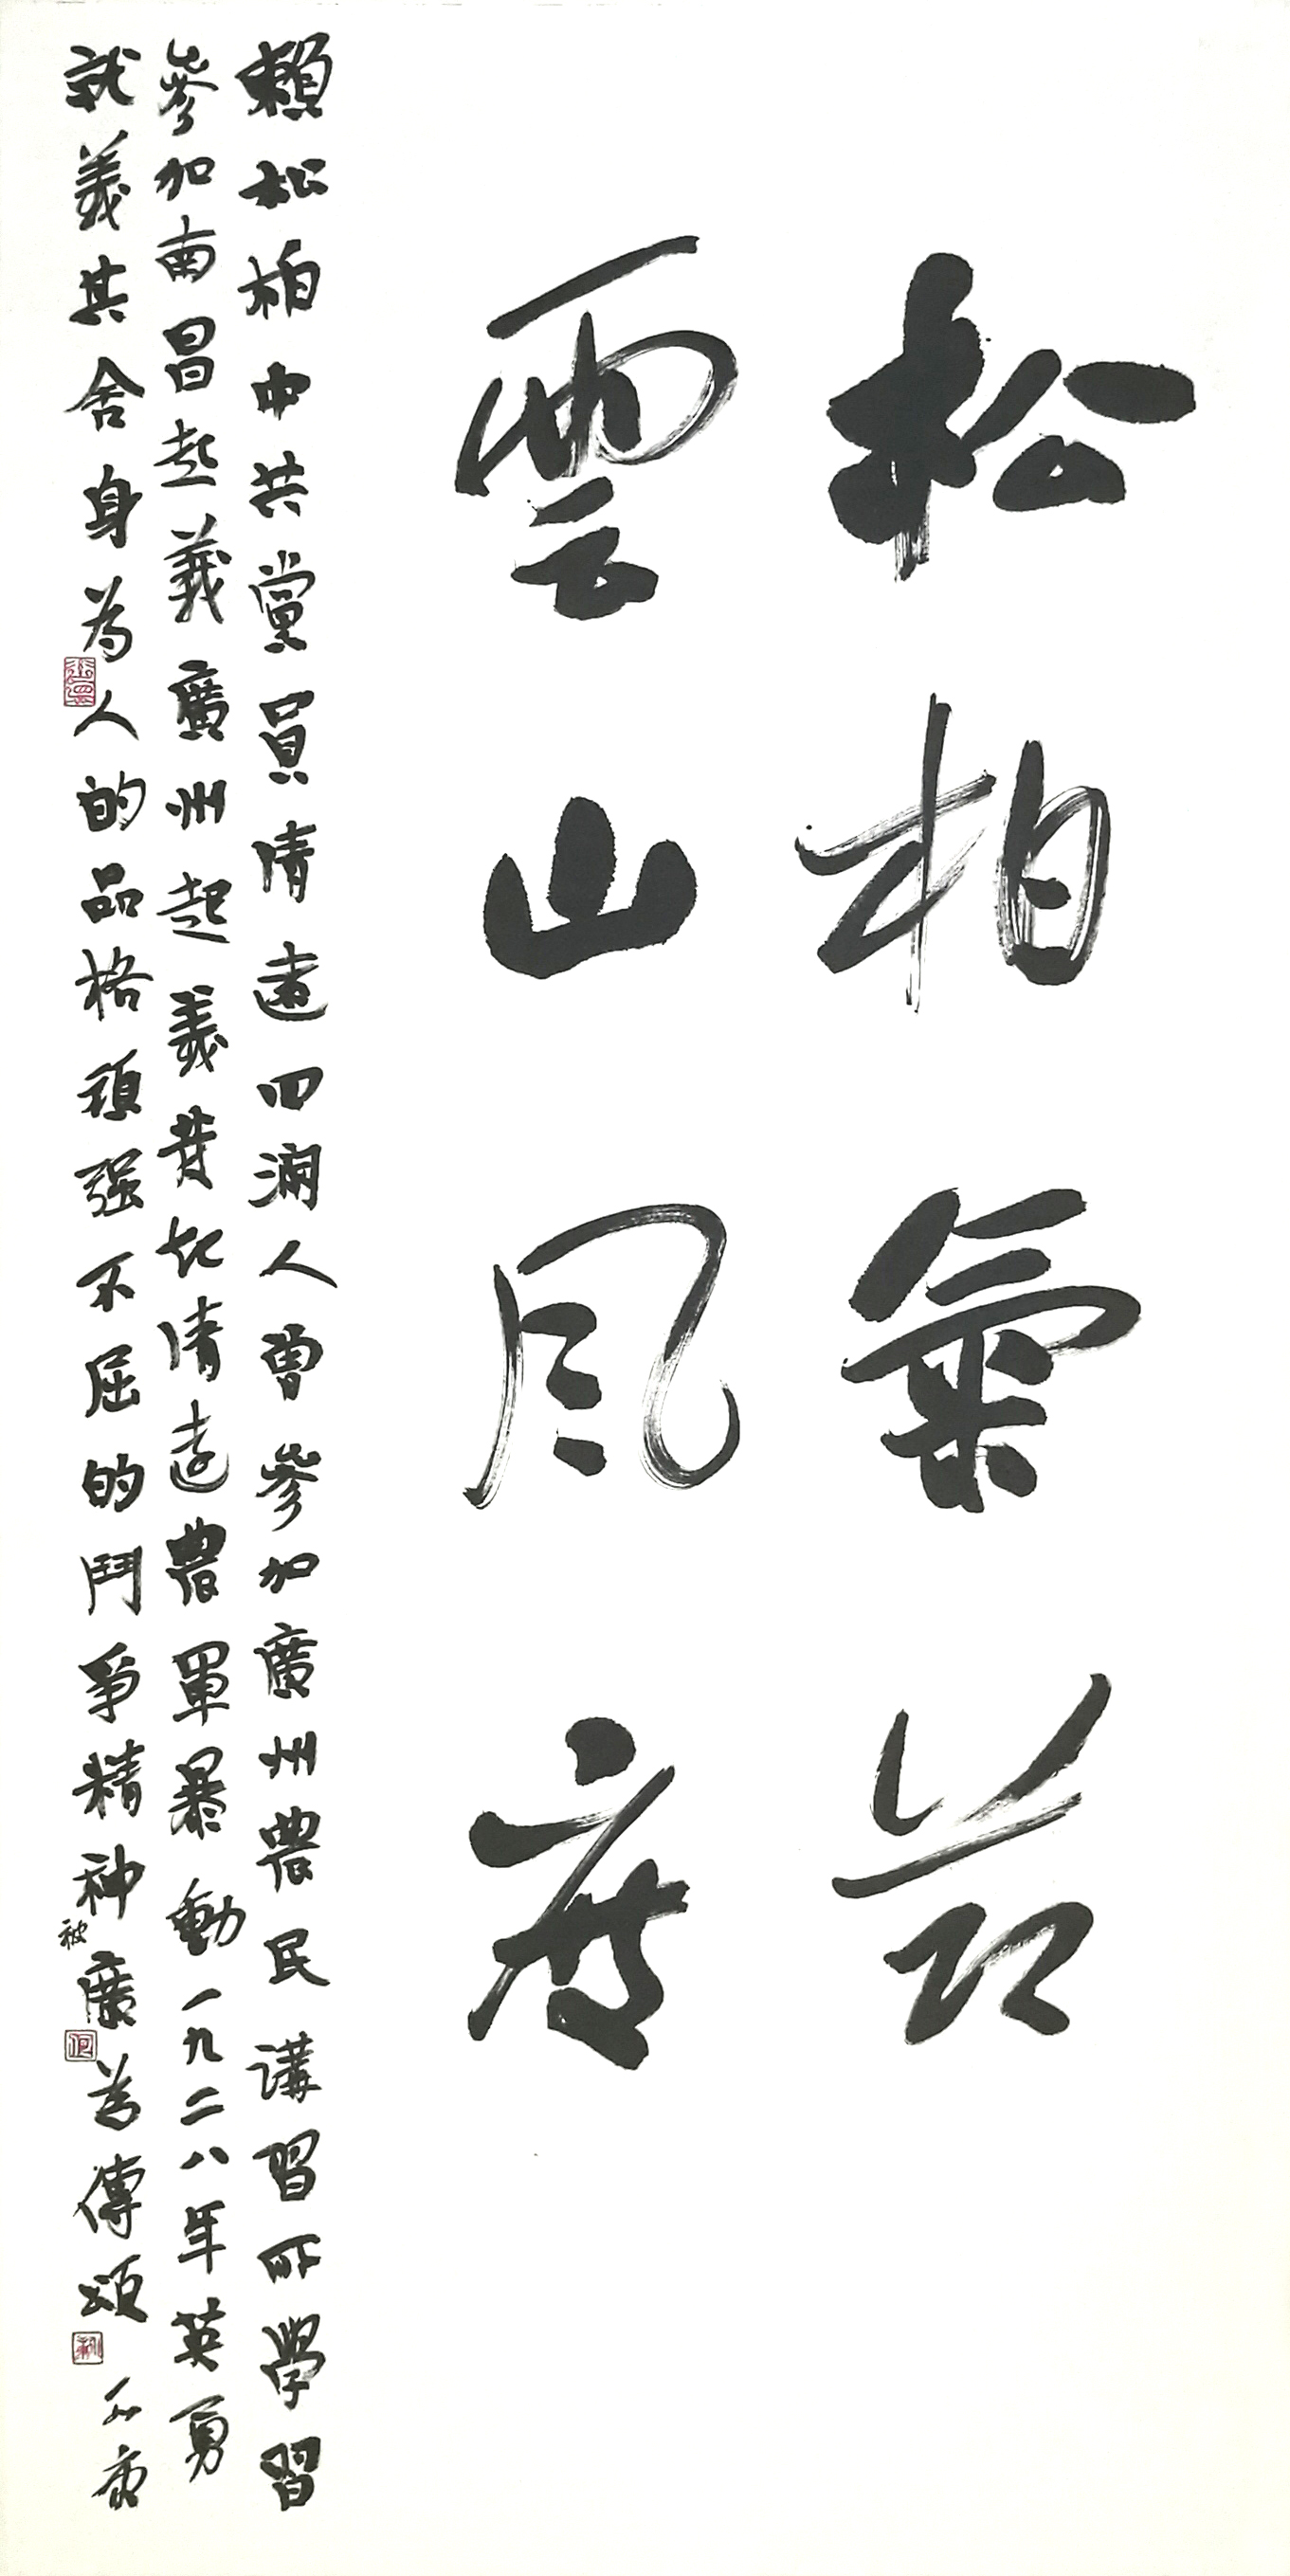 松柏氣節
雲山风度
賴松柏中共黨員清遠四洞人曾參加廣州農民講習所學習
參加南昌起義廣州起義發起清遠農軍暴動一九二八年英勇
就義其舍身為人的品格頑强不屈的鬥爭精神被廣為傳頌